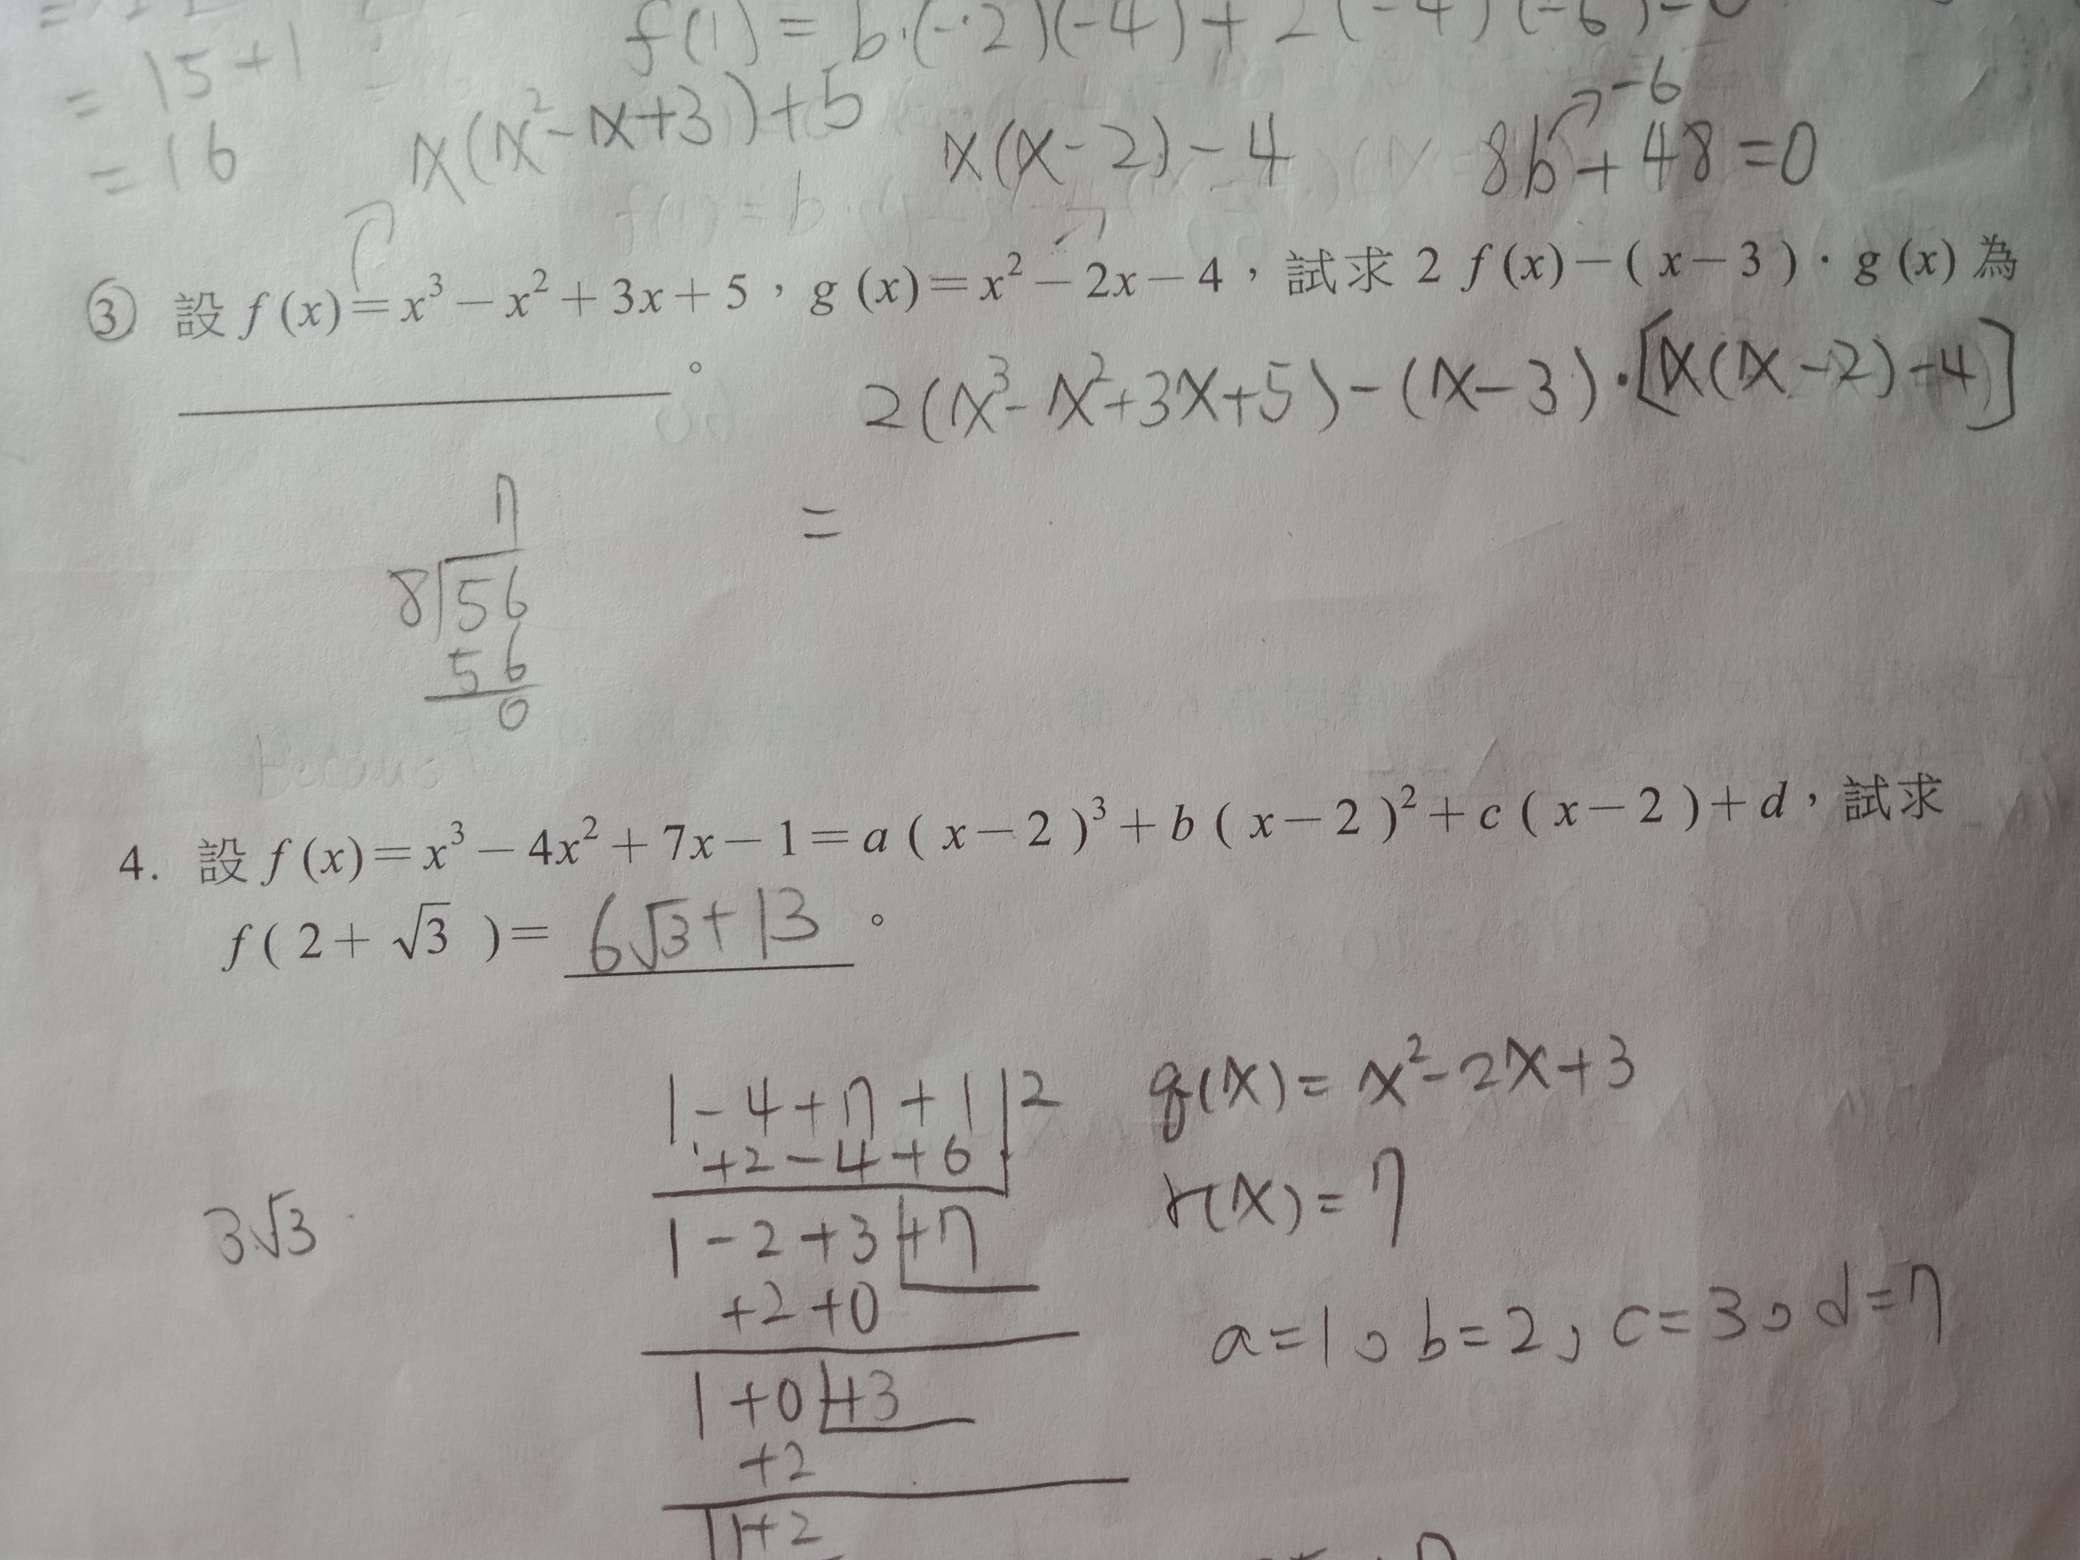 = 15+1
= 16
f(1) = b·(-2)(-4) + 2(-4)(-6)
x(x²-x+3)+5
x(x-2)-4
-6
8b+48=0
③ 設 f(x)=x³-x²+3x+5,g(x)=x²-2x-4,試求 2 f(x)-(x-3)·g(x) 為
______。
2(x³-x²+3x+5)-(x-3)·[x(x-2)-4]
=
7
8 56
56
0
4. 設 f(x)=x³-4x²+7x-1=a(x-2)³+b(x-2)²+c(x-2)+d,試求
f(2+√3)= 6√3+13 。
1-4+7+1 2
+2-4+6
1-2+3+7
+2+0
1+0+3
+2
1+2
3√3
q(x)= x²-2x+3
r(x)= 7
a=1, b=2, c=3, d=7